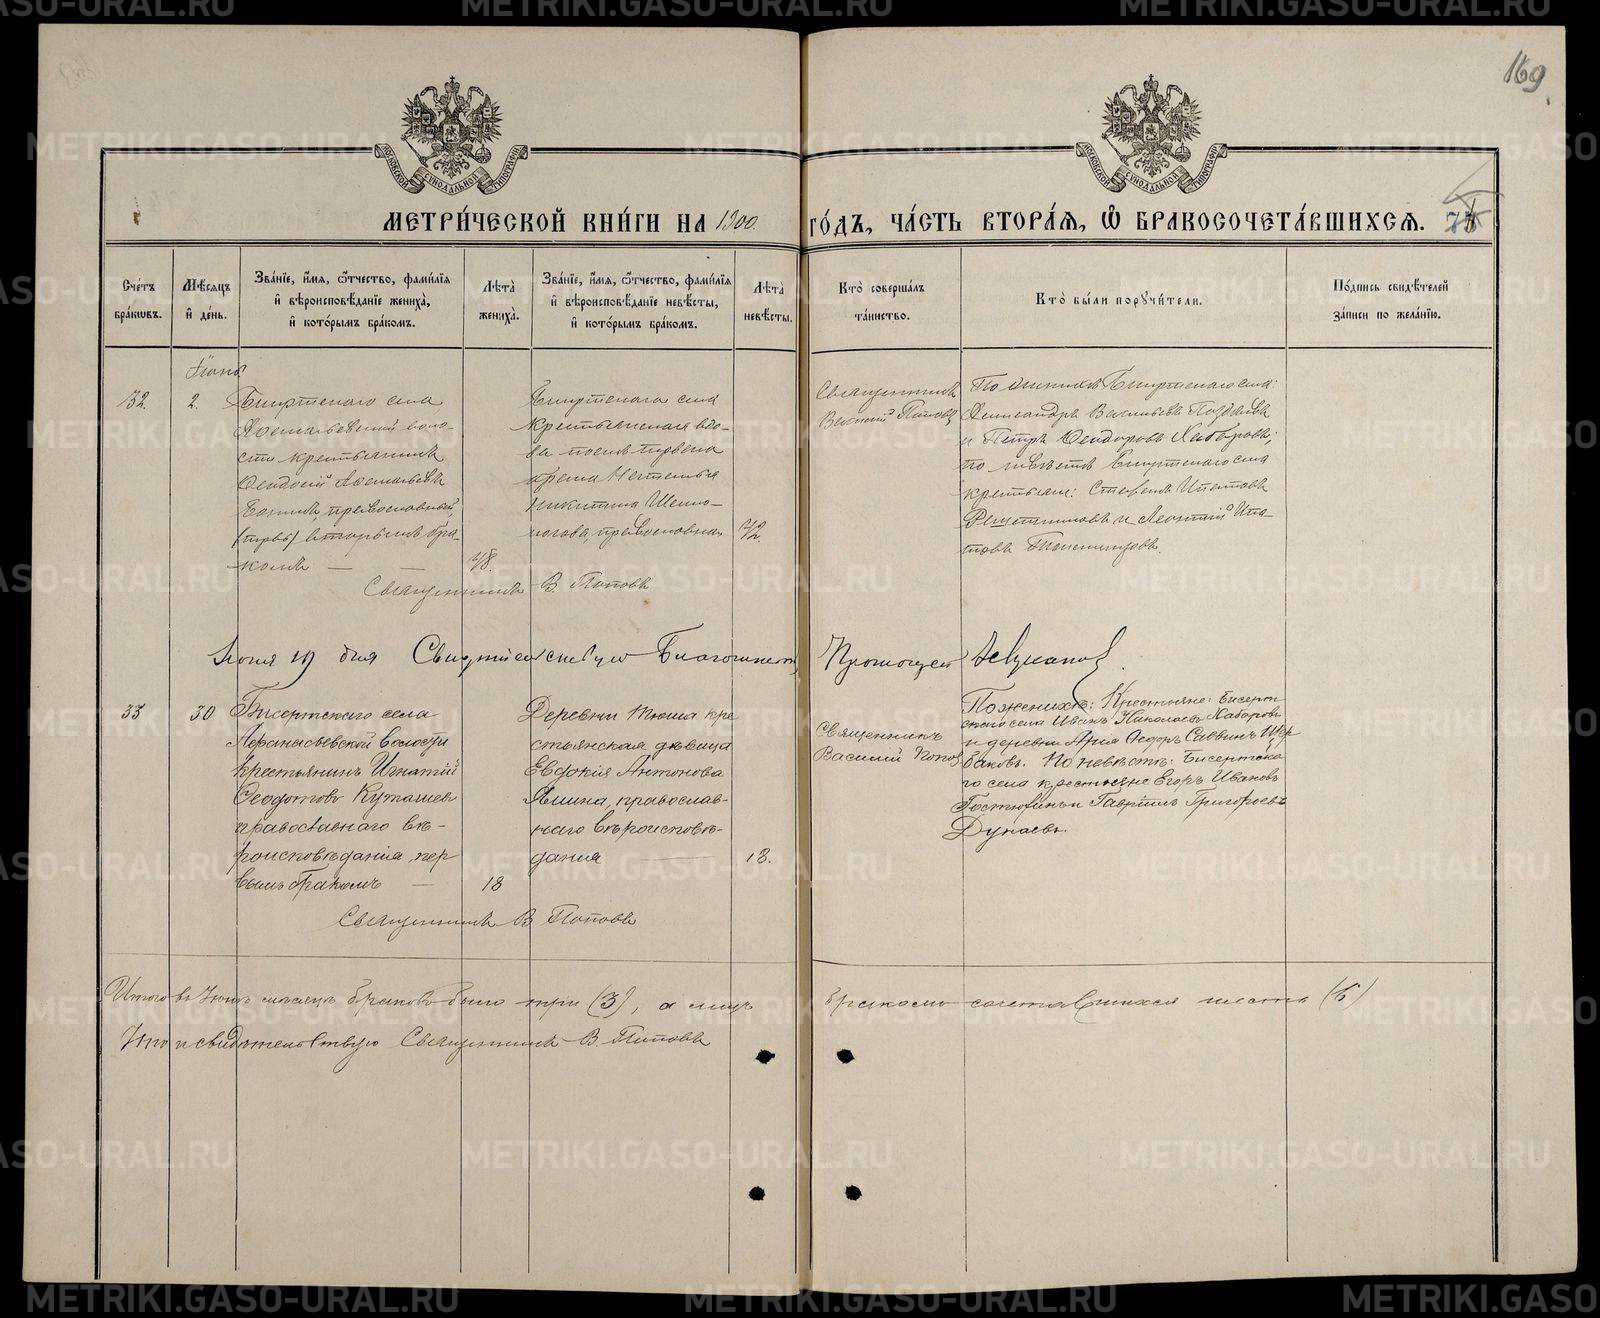 169
МЕТРИ́ЧЕСКОЙ КНИ́ГИ НА 1900. ГО́ДЪ, ЧА́СТЬ ВТОРА́Я, Ѡ БРАКОСОЧЕТА́ВШИХСЯ.
Сче́тъ бра́кѡвъ.
Мѣ́сяцъ и́ де́нь.
Зва́нїе, и́мя, ѻ҆́тчество, фами́лїя и҆ вѣроисповѣ́данїе жениха̀, и҆ кото́рымъ бра́комъ.
Лѣ́та жениха̀.
Зва́нїе, и́мя, ѻ҆́тчество, фами́лїя и҆ вѣроисповѣ́данїе невѣ́сты, и҆ кото́рымъ бра́комъ.
Лѣ́та невѣ́сты.
Кто̀ соверша́лъ та́инство.
Кто̀ бы́ли поручи́тели.
По́дпись свидѣ́телей за́писи по жела́нїю.
32.
2.
Бисертскаго села
Афанасьевской воло-
сти крестьянинъ
православный,
вторымъ бра-
комъ
48.
Бисертскаго села
крестьянская вдо-
ва послѣ перваго
брака
Никитина
православная
42.
Священникъ
Василий Поповъ
По женихѣ Бисертскаго села:
Александръ Васильевъ
и Петръ Феодоровъ Хаборовъ;
по невѣстѣ Бисертскаго села
крестьяне: Стефанъ Ипатовъ
и Леонтий Ипа-
товъ
Священникъ В. Поповъ
Июня 19 дня Свидѣтельствую Благочинный Протоиерей
33
30
Бисертскаго села
Афанасьевской волости
крестьянинъ Игнатий
Феодотовъ Куташевъ
православнаго вѣ-
роисповѣдания, пер
вымъ бракомъ
18
Деревни Тюша кре
стьянская дѣвица
Евдокия Антонова
Ялина, православ-
наго вѣроисповѣ-
дания
18.
Священникъ
Василий Попов
По женихѣ: Крестьяне: Бисерт
скаго села Иванъ Николаевъ Хаборовъ
и деревни Ария Федоръ Саввинъ Щер
баковъ. По невѣстѣ: Бисертска
го села крестьяне Егоръ Ивановъ
Гостюхинъ и Гавриилъ Григорьевъ
Дунаевъ.
Священникъ В Поповъ
Итого въ Июнѣ мѣсяцѣ браковъ было три (3), а лицъ бракомъ сочетавшихся шесть (6)
свидѣтельствую Священникъ В. Поповъ
METRIKI.GASO-URAL.RU